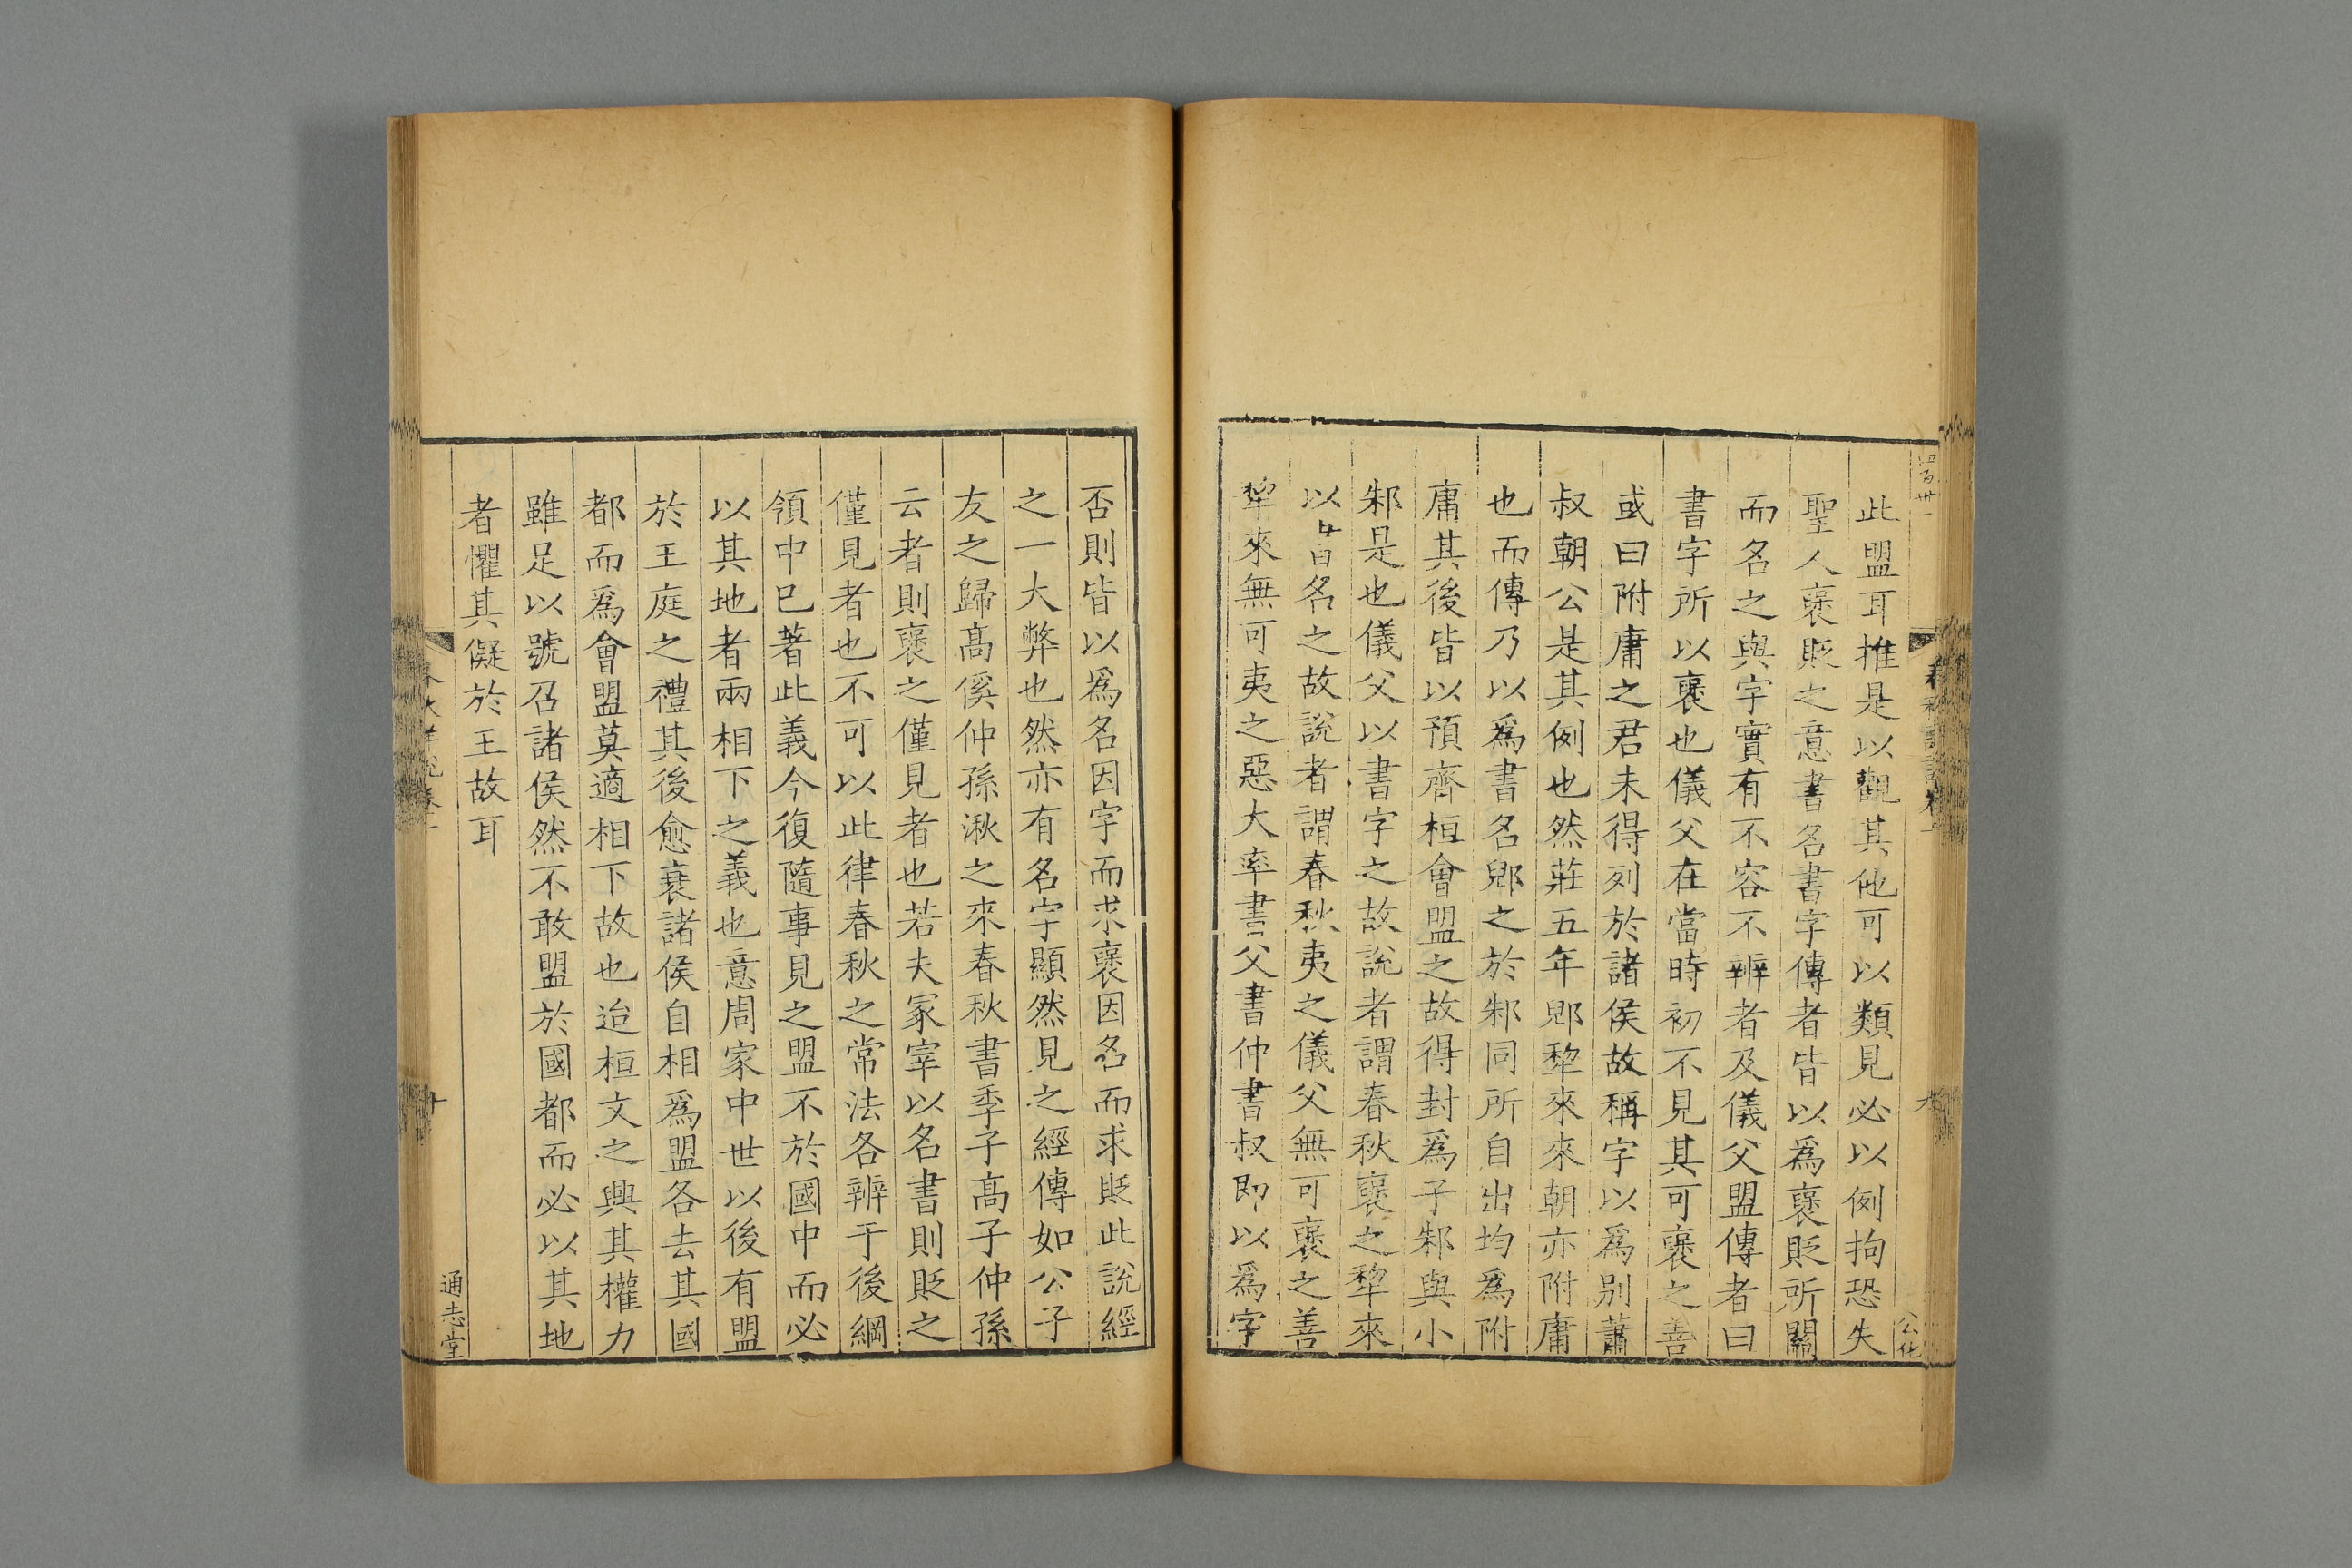 此盟耳推是以觀其他可以類見必以例拘恐失
聖人襃貶之意書名書字傳者皆以爲襃貶所關
而名之與字實有不容不辨者及儀父盟傳者曰
書字所以襃也儀父在當時初不見其可襃之善
或曰附庸之君未得列於諸侯故稱字以爲别蕭
叔朝公是其例也然莊五年郳犂來來朝亦附庸
也而傳乃以爲書名郳之於邾同所自出均爲附
庸其後皆以預齊桓會盟之故得封爲子邾與小
邾是也儀父以書字之故說者謂春秋襃之犂來
以名之故說者謂春秋夷之儀父無可襃之善
犂來無可夷之惡大率書父書仲書叔即以爲字
九
否則皆以爲名因字而求襃因名而求貶此說經
之一大弊也然亦有名字顯然見之經傳如公子
友之歸高傒仲孫湫之來春秋書季子高子仲孫
云者則襃之僅見者也若夫冢宰以名書則貶之
僅見者也不可以此律春秋之常法各辨于後綱
領中已著此義今復隨事見之盟不於國中而必
以其地者兩相下之義也意周家中世以後有盟
於王庭之禮其後愈衰諸侯自相爲盟各去其國
都而爲會盟莫適相下故也迨桓文之興其權力
雖足以號召諸侯然不敢盟於國都而必以其地
者懼其儗於王故耳
十
通志堂